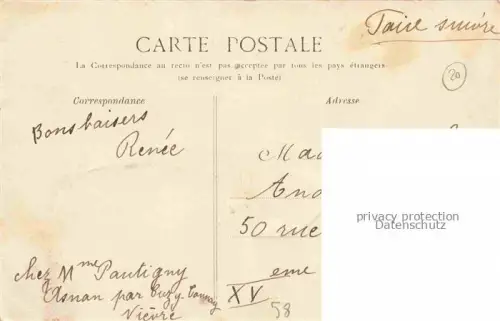 Faire suivre
CARTE POSTALE
La Correspondance au recto n'est pas acceptée par tous les pays étrangers
(se renseigner à la Poste)
20
Correspondance
Adresse
Bons baisers
Renée
Mad
And
50 rue
eme
XV
58
chez Mme Pautigny
Asnan par
Nièvre
privacy protection
Datenschutz